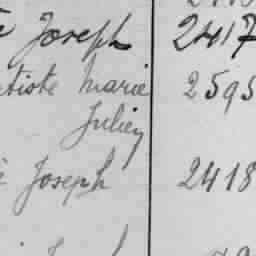 Joseph 2417
tiste Marie 2595
Julien
Joseph 2418